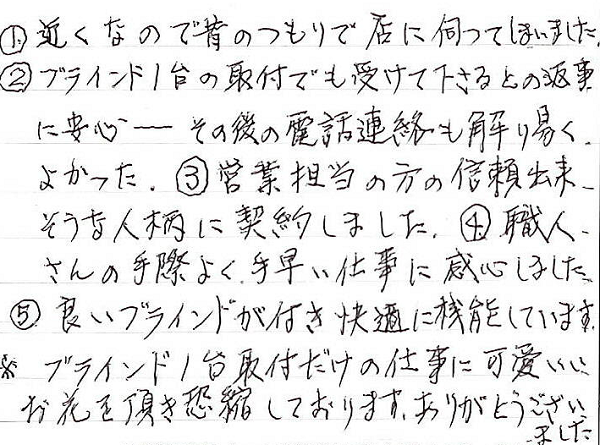 ① 近くなので昔のつもりで店に伺ってしまいました.
② ブラインド1台の取付でも受けて下さるとの返事
に安心── その後の電話連絡も解り易く、
よかった. ③ 営業担当の方の信頼出来
そうな人柄に契約しました. ④ 職人
さんの手際よく、手早い仕事に感心しました
⑤ 良いブラインドが付き快適に機能しています.
※ ブラインド1台取付だけの仕事に可愛いい
お花を頂き恐縮しております.ありがとうござい
ました